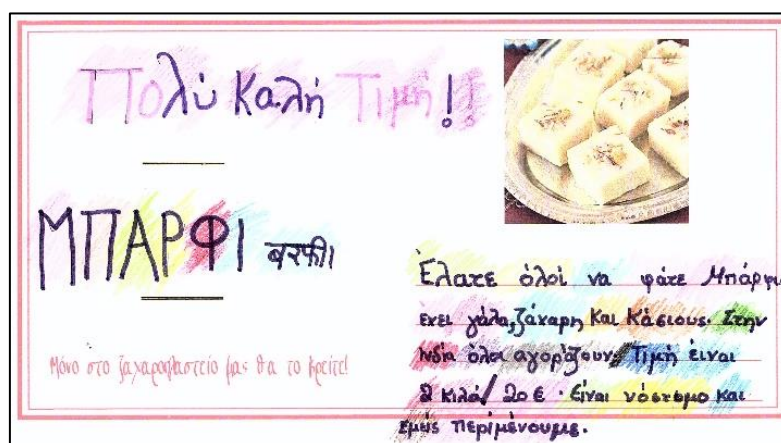 Πολύ Καλή Τιμή!!
ΜΠΑΡΦΙ बरफी।
Μόνο στο ζαχαροπλαστείο μας θα το βρείτε!
Έλατε όλοι να φάτε Μπάρφι
εχει γάλα, ζάχαρη και κάσιους. Στην
Ινδία όλοι αγοράζουν. Τιμή είναι
2 κιλά/ 20 €. είναι νόστιμο και
εμείς περιμένουμε.